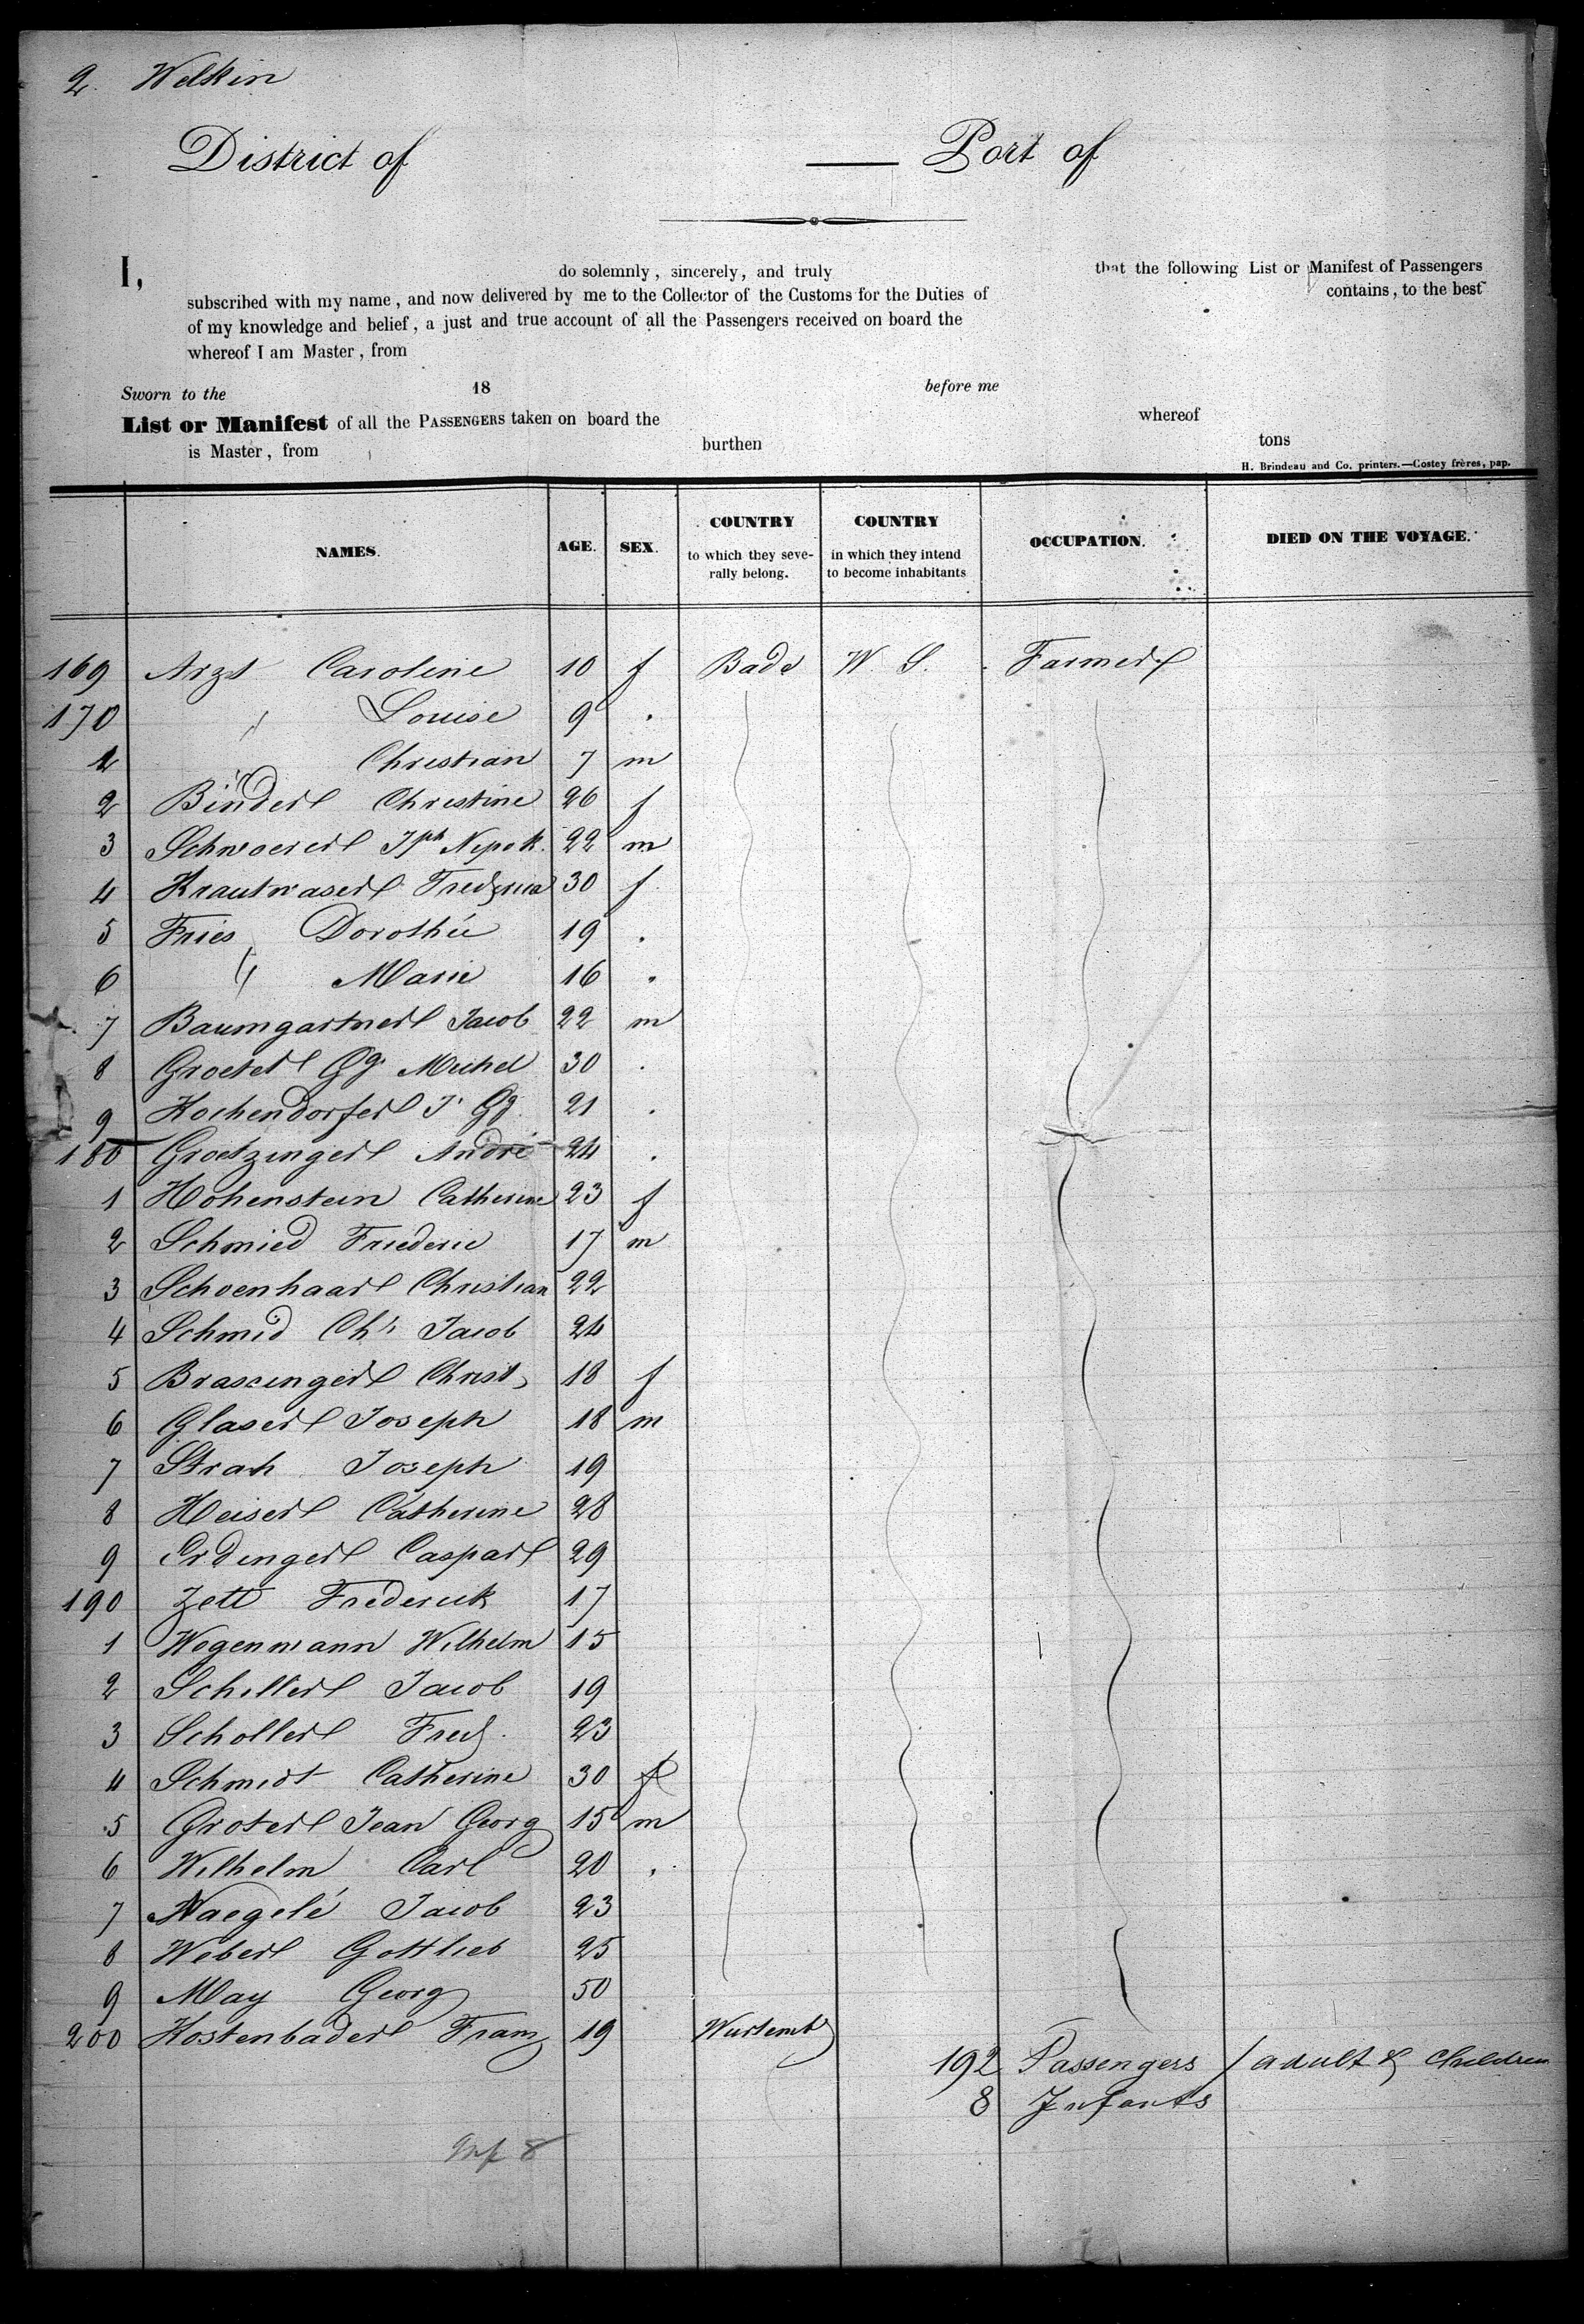 2. Welkin
District of — Port of
I, do solemnly, sincerely, and truly that the following List or Manifest of Passengers
subscribed with my name, and now delivered by me to the Collector of the Customs for the Duties of contains, to the best
of my knowledge and belief, a just and true account of all the Passengers received on board the
whereof I am Master, from
Sworn to the 18 before me
List or Manifest of all the PASSENGERS taken on board the whereof
is Master, from burthen tons
H. Brindeau and Co. printers.—Costey frères, pap.
NAMES. AGE. SEX. COUNTRY to which they severally belong. COUNTRY in which they intend to become inhabitants OCCUPATION. DIED ON THE VOYAGE.
169 Arzt Caroline 10 f Bade Farmer
170 " Louise 9 .
1 " Christian 7 m
2 Binder Christine 26 f
3 Schwoerer Jph 22 m
4 Krautwaser 30 f
5 Fries Dorothée 19 .
6 " Marie 16 .
7 Baumgartner Jacob 22 m
8 Groeter Gg Michel 30 .
9 Kochendorfer J. Gg. 21 .
180 Groetzinger André 24 .
1 Hohenstein Catherine 23 f
2 Schmied Frederic 17 m
3 Schoenhaar Christian 22
4 Schmid Ch. Jacob 24
5 Christ. 18 f
6 Glaser Joseph 18 m
7 Strah Joseph 19
8 Heiser Catherine 28
9 Erdinger Caspar 29
190 Zett Frederick 17
1 Wegenmann Wilhelm 15
2 Schiller Jacob 19
3 Scholler Fred. 23
4 Schmidt Catherine 30 f
5 Groter Jean Georg 15 m
6 Wilhelm Carl 20 .
7 Naegelé Jacob 23
8 Weber Gottlieb 25
9 May Georg 50
200 Kostenbader Franz 19 Wurtemb
192 Passengers / adult & Children
8 Infants
Inf 8